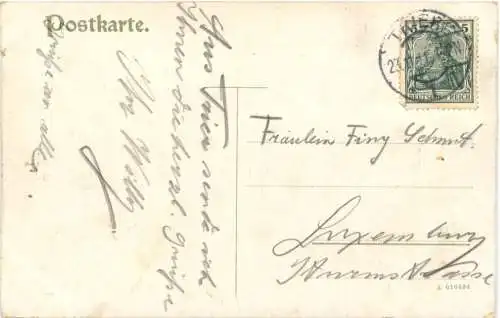 Postkarte.
TRIER
5
DEUTSCHES REICH
Aus Trier sende ich
Ihnen die herzl. Grüsse
Ihr Willy
Grüsse an alle.
Fräulein Finy Schmit.
Luxemburg